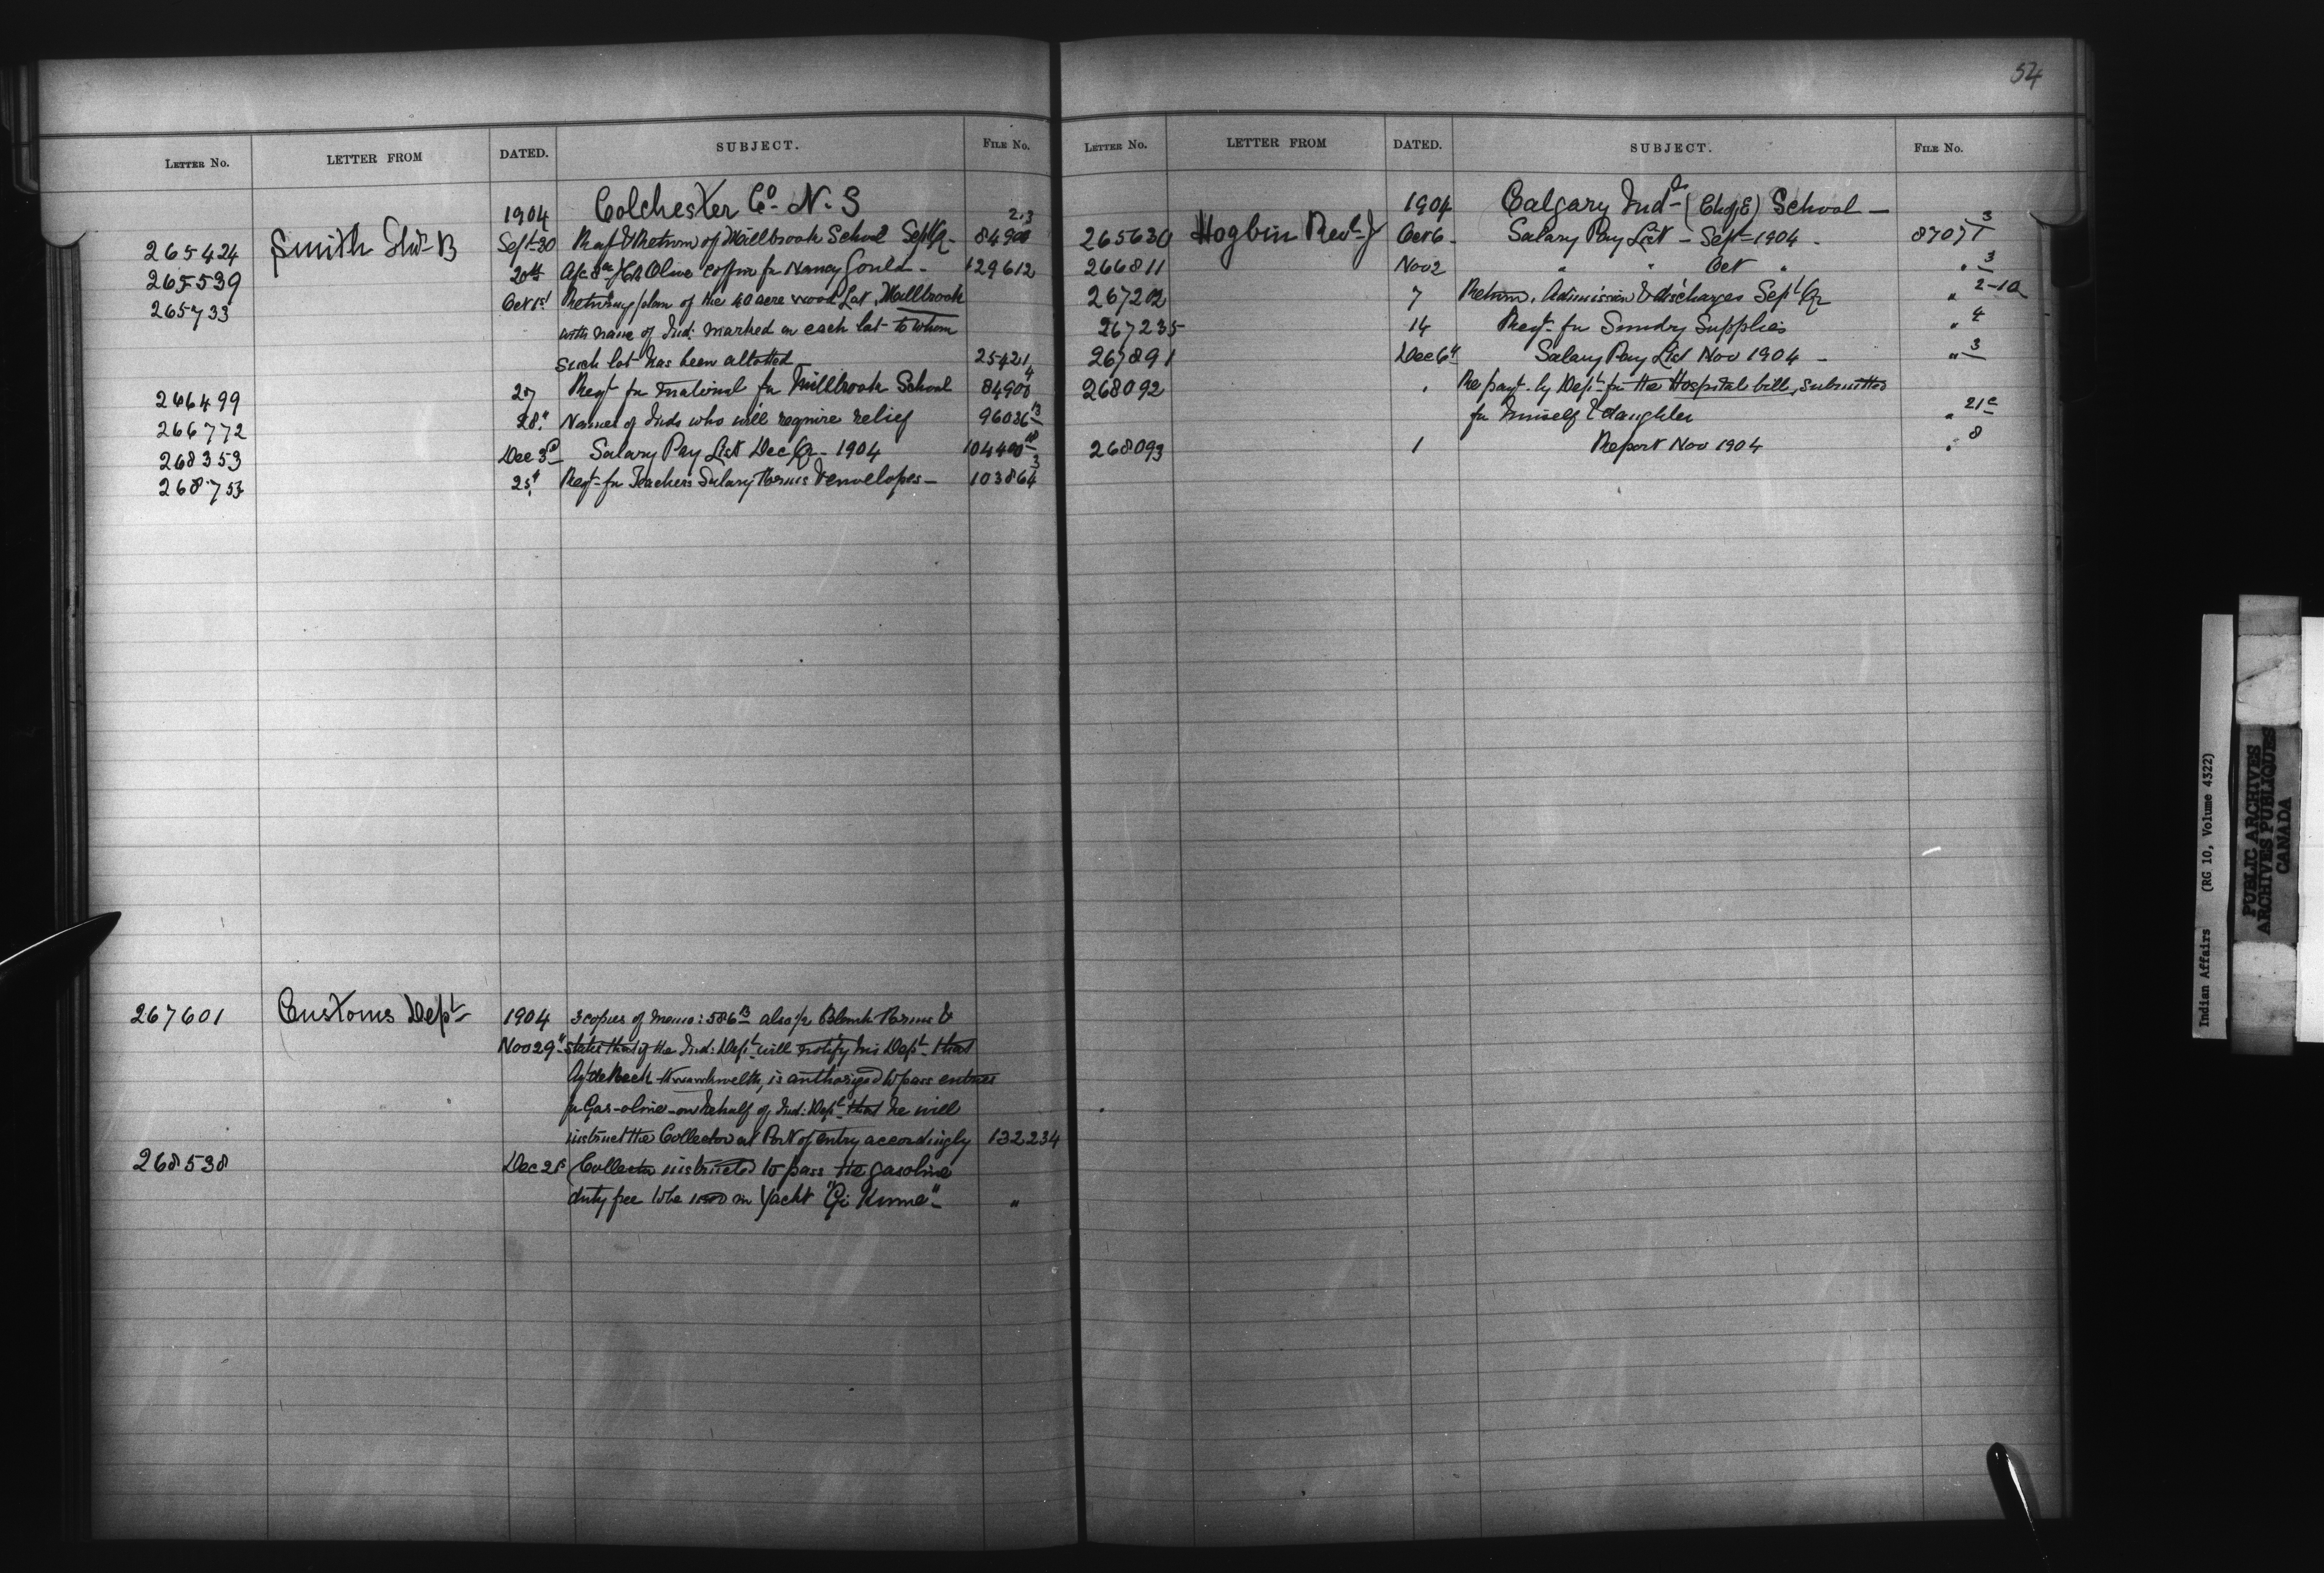 54
LETTER No. LETTER FROM DATED. SUBJECT. FILE No.
1904 Colchester Co. N. S
265424 Smith Thos B Sept 30 Rept & Return of Millbrook School Sept Qr - 84900 2.3
265539 20th coffin for Nancy Gould - 129612
265733 Oct 1st Returning plan of the 40 acre wood Lot, Millbrook
with name of Ind: marked on each lot to whom
such lot has been allotted 25421
266499 27 Reqt for material for Millbrook School 84900 4
266772 28" Names of Inds who will require relief 96036 13
268353 Dec 3d Salary Pay List Dec Qr - 1904 104400
268753 Reqt for Teachers Salary Forms & envelopes - 103864 3
267601 Customs Dept 1904 3 copies of memo: 586 B also 1/2 Blank Forms &
Nov 29" states that if the Ind: Dept will notify his Dept that
is authorized to pass entries
for Gas-oline - on behalf of Ind: Dept that he will
instruct the Collector at Port of entry accordingly 132234
268538 Dec Collector instructed to pass the gasoline
duty free to be used in Yacht "Gi Kuma" - "
LETTER No. LETTER FROM DATED. SUBJECT. FILE No.
1904 Calgary Indl (Ch of E) School -
265630 Hogbin Revd J Oct 6 - Salary Pay List - Sept 1904 - 87071 3
266811 Nov 2 " " Oct " " 3
267202 7 Return, Admission & discharges Sept Qr " 2-1a
267235 14 Reqt for Sundry Supplies " 4
267891 Dec 6" Salary Pay List Nov 1904 - " 3
268092 " Re payt by Dept for the Hospital bill, submitted
for himself & daughter " 21c
268093 1 Report Nov 1904 " 8
Indian Affairs (RG 10, Volume 4322)
PUBLIC ARCHIVES
ARCHIVES PUBLIQUES
CANADA